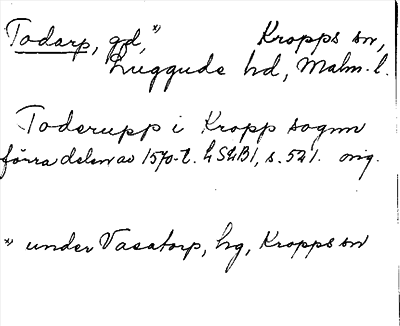 Todarp, gd,*) Kropps sn,
Luggude hd, Malm. l.
Toderupp i Kropp sognn
förra delen av 1570-t. LSÄBI, s. 521. orig.
*) under Vasatorp, hg, Kropps sn